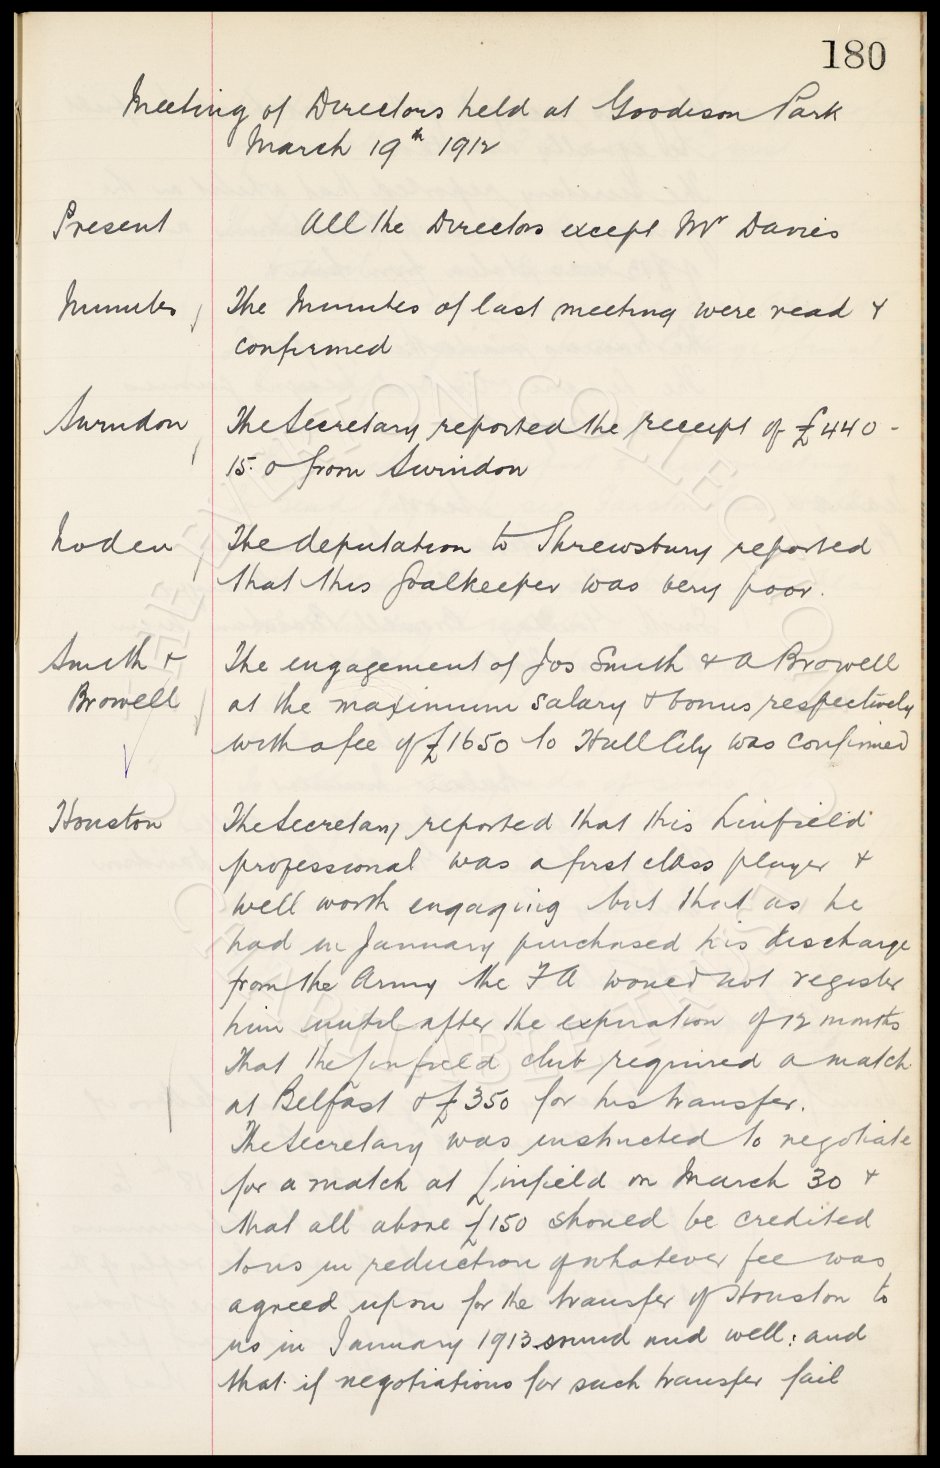 180
Meeting of Directors held at Goodison Park
March 19th 1912
Present All the Directors except Mr Davies
Minutes The Minutes of last meeting were read &
confirmed
Swindon The Secretary reported the receipt of £440-
15.0 from Swindon
Noden The deputation to Shrewsbury reported
that this Goalkeeper was very poor.
Smith & The engagement of Jos Smith & A Browell
Browell at the maximum salary & bonus respectively
with a fee of £1650 to Hull City was confirmed
Houston The Secretary reported that this Linfield
professional was a first class player &
well worth engaging but that as he
had in January purchased his discharge
from the Army the FA would not register
him until after the expiration of 12 months
That the Linfield club required a match
at Belfast & £350 for his transfer.
The Secretary was instructed to negotiate
for a match at Linfield on March 30 &
that all above £150 should be credited
to us in reduction of whatever fee was
agreed upon for the transfer of Houston to
us in January 1913 sound and well: and
that if negotiations for such transfer fail